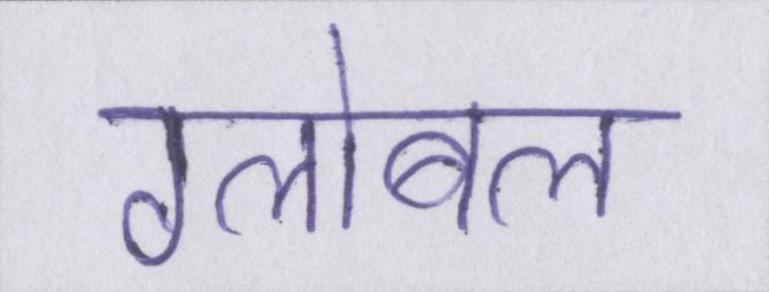 ग्लोबल